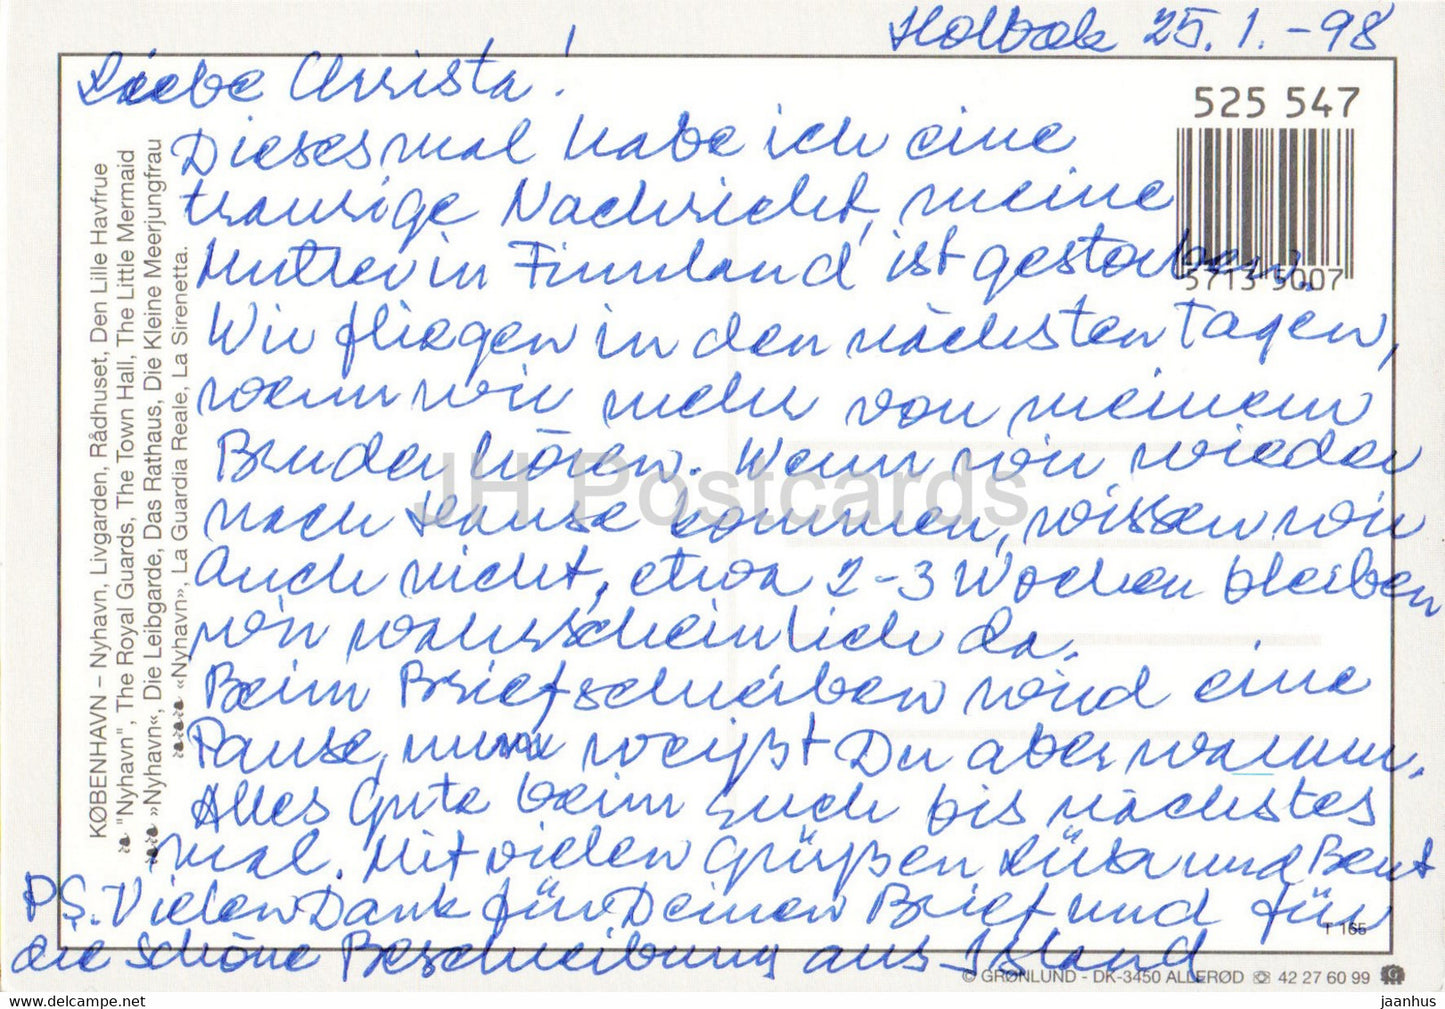 Holbæk 25.1.-98
Liebe Christa!
Diesesmal habe ich eine
traurige Nachricht, meine
Mutter in Finnland ist gestorben.
Wir fliegen in den nächsten Tagen,
wenn wir mehr von meinem
Bruder hören. Wenn wir wieder
nach Hause kommen, wissen wir
auch nicht, etwa 2-3 Wochen bleiben
wir wahrscheinlich da.
Beim Briefschreiben wird eine
Pause, nun weißt Du aber warum.
Alles Gute beim Euch bis nächstes
mal. Mit vielen Grüßen und Bent
PS. Vielen Dank für Deinen Brief und für
die schöne Beschreibung aus Island
525 547
5713 5007
KØBENHAVN – Nyhavn, Livgarden, Rådhuset, Den Lille Havfrue
"Nyhavn", The Royal Guards, The Town Hall, The Little Mermaid
»Nyhavn«, Die Leibgarde, Das Rathaus, Die Kleine Meerjungfrau
«Nyhavn», La Guardia Reale, La Sirenetta.
JH Postcards
T 165
© GRØNLUND - DK-3450 ALLERØD ☏ 42 27 60 99 G
www.delcampe.net
jaanhus